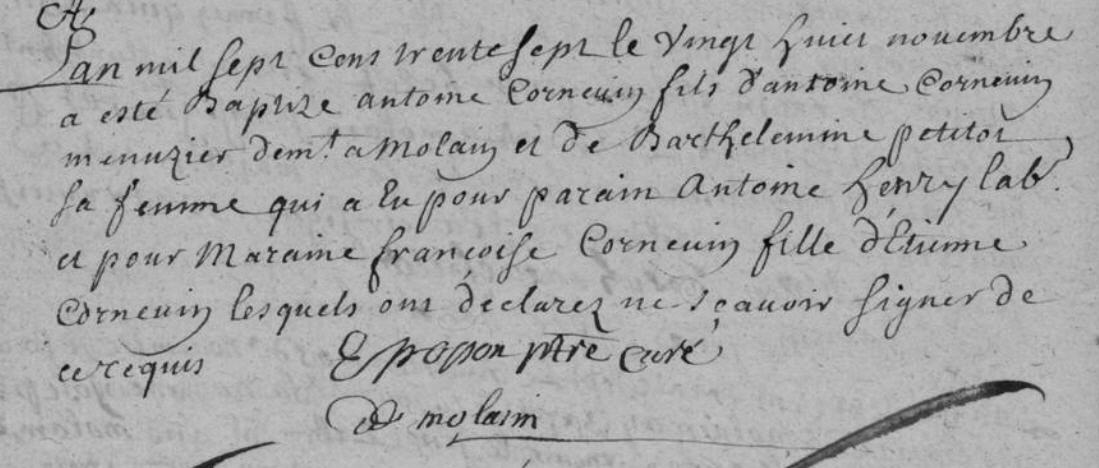 A
Lan mil sept cens trente sept le vingt huict novembre
a esté Baptize antoine Cornevin fils d'antoine Cornevin
menuzier demt. a Molain et de Barthelemine petitot
sa femme qui a Eu pour parain Antoine henry labr.
et pour Maraine françoise Cornevin fille d'Etienne
Cornevin lesquels ont déclarez ne sçavoir signer de
ce requis popon ptre curé
de molain